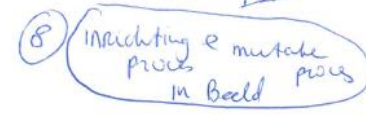 8 inrichting e mutatie
proces proces
in Beeld